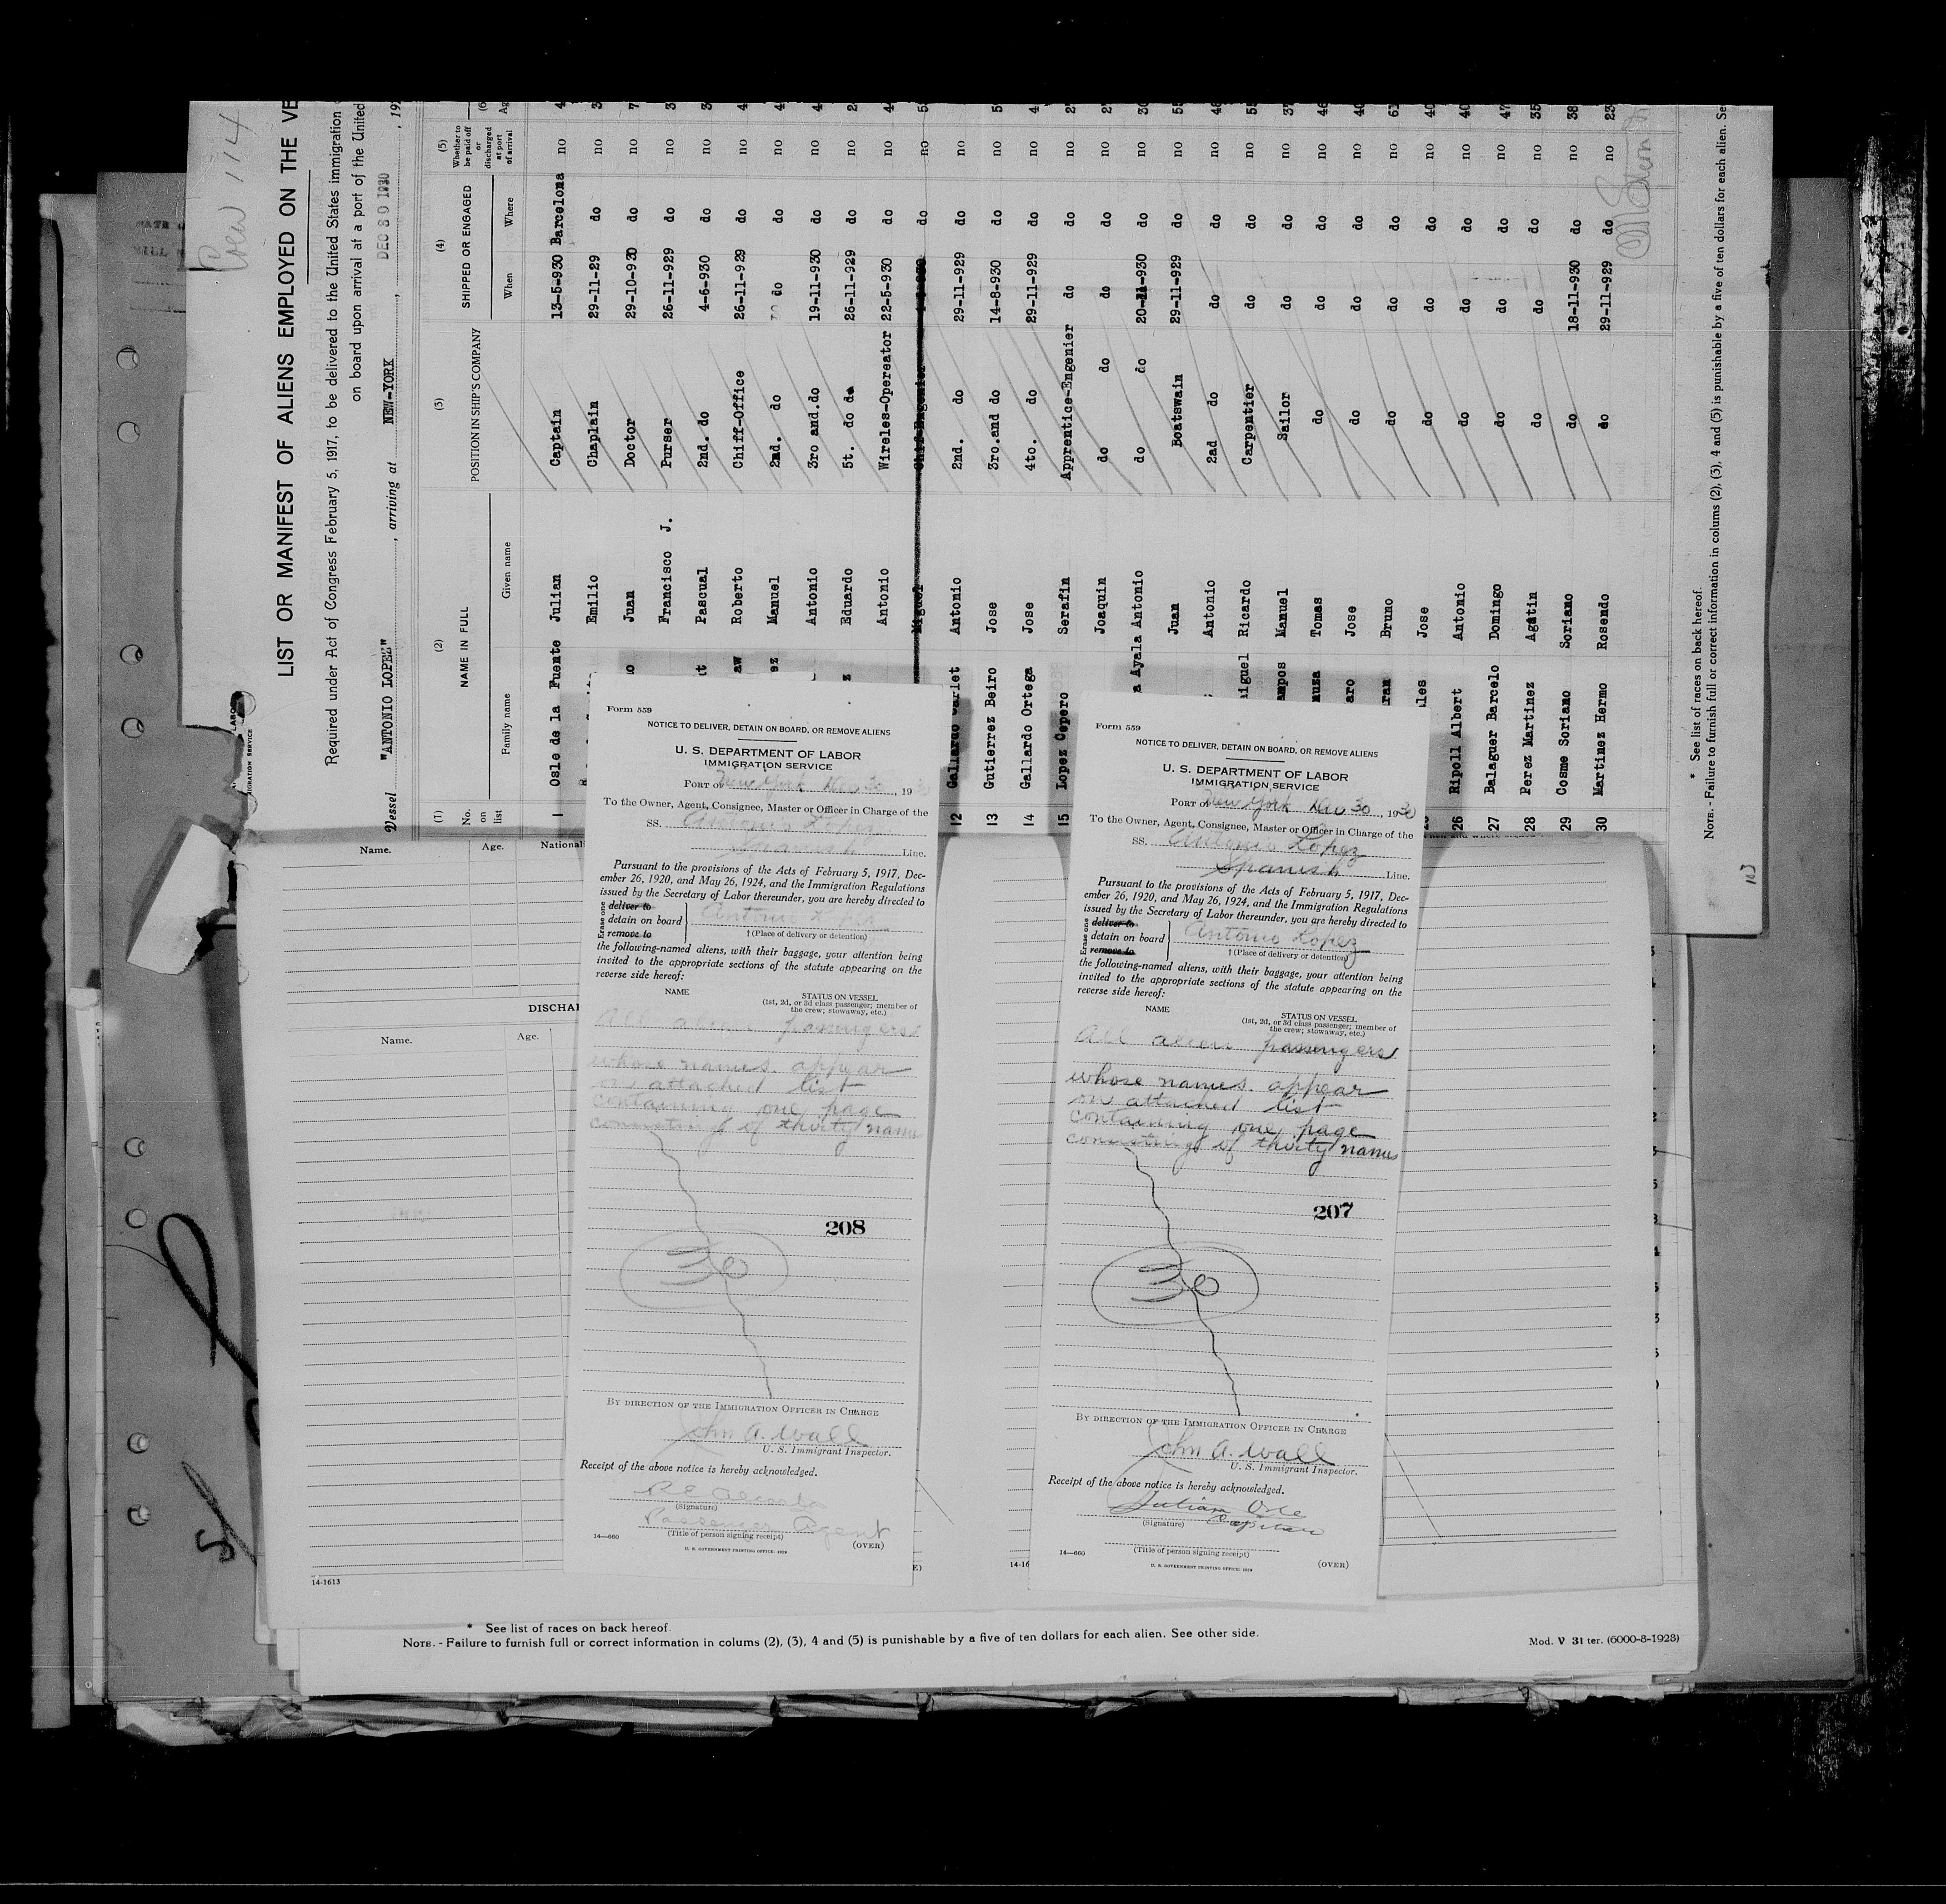 Crew 114
LIST OR MANIFEST OF ALIENS EMPLOYED ON THE VE
Required under Act of Congress February 5, 1917, to be delivered to the United States immigration
on board upon arrival at a port of the United
Vessel "ANTONIO LOPEZ", arriving at NEW-YORK, DEC 30 1930, 19
(1) (2) (3) (4) (5) (6
No. on list NAME IN FULL POSITION IN SHIP'S COMPANY SHIPPED OR ENGAGED Whether to be paid off or discharged at port of arrival Ag
Family name Given name When Where
1 Osle de la Fuente Julian Captain 13-5-930 Barcelona no 4
Emilio Chaplain 29-11-29 do no 3
Juan Doctor 29-10-930 do no 7
Francisco J. Purser 26-11-929 do no 3
Pascual 2nd. do 4-6-930 do no 3
aw Roberto Chiff-Office 26-11-929 do no 4
ez Manuel 2nd. do do do no 4
Antonio 3ro and.do 19-11-930 do no 4
z Eduardo 5t. do do 26-11-929 do no 2
Antonio Wireless-Opereator 22-5-930 do no 4
Miguel Chif-Engenier do no 5
12 Gallardo Antonio 2nd. do 29-11-929 do no
13 Gutierrez Beiro Jose 3ro.and do 14-8-930 do no 5
14 Gallardo Ortega Jose 4to. do 29-11-929 do no 4
15 Lopez Cepero Serafin Apprentice-Engenier do do no 2
Joaquin do do do do no 2
a Ayala Antonio do do 20-11-930 do no 30
Juan Boatswain 29-11-929 do no 55
Antonio 2ad do do do no 48
iguel Ricardo Carpentier do do no 55
ampos Manuel Sailor do do no 37
nuza Tomas do do do no 46
aro Jose do do do no 40
ran Bruno do do do no 61
les Jose do do do no 40
26 Ripoll Albert Antonio do do do no 40
27 Balaguer Barcelo Domingo do do do no 47
28 Perez Martinez Agatin do do do no 35
29 Cosme Soriano Soriano do 18-11-930 do no 38
30 Martinez Hermo Rosendo do 29-11-929 do no 23
* See list of races on back hereof.
NOTE. - Failure to furnish full or correct information in colums (2), (3), 4 and (5) is punishable by a five of ten dollars for each alien. Se
Name. Age. National
DISCHA
Name. Age.
14-1613
Form 559
NOTICE TO DELIVER, DETAIN ON BOARD, OR REMOVE ALIENS
U. S. DEPARTMENT OF LABOR
IMMIGRATION SERVICE
PORT OF New York Dec 30, 1930
To the Owner, Agent, Consignee, Master or Officer in Charge of the
SS. Antonio Lopez
Spanish Line.
Pursuant to the provisions of the Acts of February 5, 1917, Dec-
ember 26, 1920, and May 26, 1924, and the Immigration Regulations
issued by the Secretary of Labor thereunder, you are hereby directed to
Erase one
deliver to
detain on board Antonio Lopez
remove to † (Place of delivery or detention)
the following-named aliens, with their baggage, your attention being
invited to the appropriate sections of the statute appearing on the
reverse side hereof:
NAME STATUS ON VESSEL
(1st, 2d, or 3d class passenger; member of
the crew; stowaway, etc.)
All alien passengers
whose names. appear
on attached list
containing one page
consisting of thirty names
208
30
BY DIRECTION OF THE IMMIGRATION OFFICER IN CHARGE
John A. Wall
U. S. Immigrant Inspector.
Receipt of the above notice is hereby acknowledged.
(Signature)
Passenger Agent
14—660 (Title of person signing receipt) (OVER)
U. S. GOVERNMENT PRINTING OFFICE: 1929
Form 559
NOTICE TO DELIVER, DETAIN ON BOARD, OR REMOVE ALIENS
U. S. DEPARTMENT OF LABOR
IMMIGRATION SERVICE
PORT OF New York Dec 30, 1930
To the Owner, Agent, Consignee, Master or Officer in Charge of the
SS. Antonio Lopez
Spanish Line.
Pursuant to the provisions of the Acts of February 5, 1917, Dec-
ember 26, 1920, and May 26, 1924, and the Immigration Regulations
issued by the Secretary of Labor thereunder, you are hereby directed to
Erase one
deliver to
detain on board Antonio Lopez
remove to † (Place of delivery or detention)
the following-named aliens, with their baggage, your attention being
invited to the appropriate sections of the statute appearing on the
reverse side hereof:
NAME STATUS ON VESSEL
(1st, 2d, or 3d class passenger; member of
the crew; stowaway, etc.)
All alien passengers
whose names. appear
on attached list
containing one page
consisting of thirty names
207
30
BY DIRECTION OF THE IMMIGRATION OFFICER IN CHARGE
John A. Wall
U. S. Immigrant Inspector.
Receipt of the above notice is hereby acknowledged.
Julian Osle
(Signature) Capitan
14—660 (Title of person signing receipt) (OVER)
U. S. GOVERNMENT PRINTING OFFICE: 1929
14-16
* See list of races on back hereof.
NOTE. - Failure to furnish full or correct information in colums (2), (3), 4 and (5) is punishable by a five of ten dollars for each alien. See other side.
Mod. V 31 ter. (6000-8-1928)